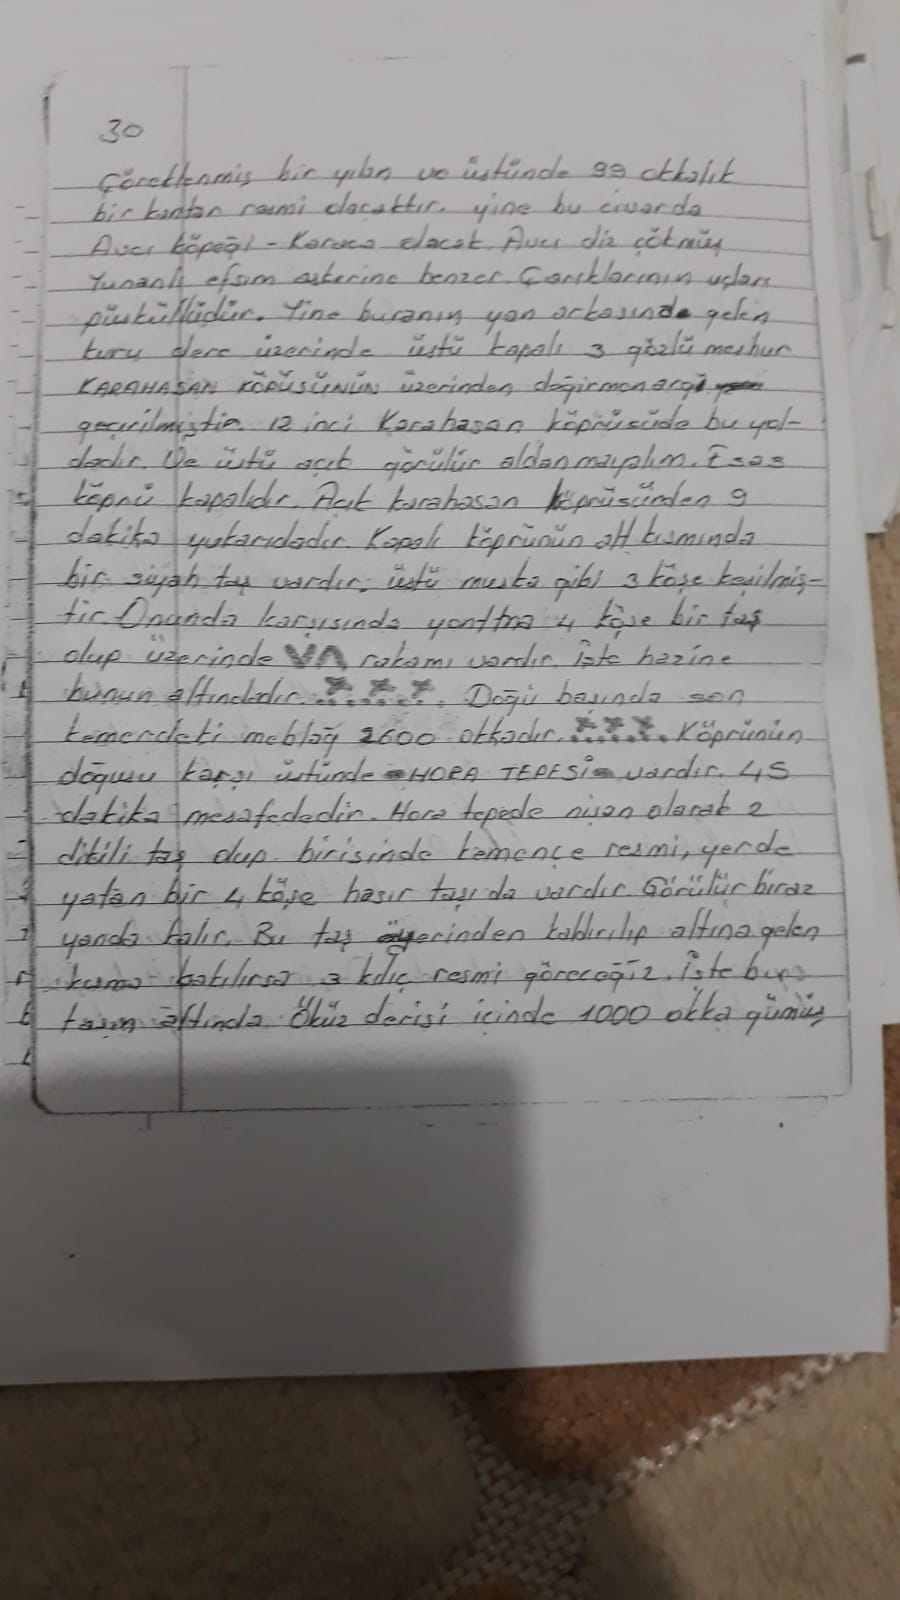 30
Çöreklenmiş bir yılan ve üstünde 99 okkalık
bir kantar resmi olacaktır. yine bu civarda
Avcı köpeği - Karaca olacak. Avcı diz çökmüş
Yunanlı efsım askerine benzer. Çarıklarının uçları
püsküllüdür. Yine buranın yan arkasında gelen
kuru dere üzerinde üstü kapalı 3 gözlü meshur
KARAHASAN KÖPÜSÜNÜN üzerinden değirmenargı
geçirilmiştir. 12 inci Karahasan köprüsüde bu yol-
dadır. Ve üstü açık görülür aldanmayalım. Esas
köprü kapalıdır. Açık karahasan köprüsünden 9
dakika yukarıdadır. Kapalı köprünün alt kısmında
bir siyah taş vardır. üstü muska gibi 3 köşe kesilmiş-
tir. Onunda karşısında yontma 4 köşe bir taş
olup üzerinde VΛ rakamı vardır. İşte hazine
bunun altındadır. Doğu başında son
kemerdeki meblağ 2600 okkadır. Köprünün
doğusu karşı üstünde - HORA TEPESİ - vardır. 45
dakika mesafededir. Hora tepede nişan olarak 2
dikili taş olup birisinde kemençe resmi, yerde
yatan bir 4 köşe hasır taşı da vardır. Görülür biraz
yanda kalır. Bu taş yerinden kaldırılıp altına gelen
kısma bakılırsa 3 kılıç resmi göreceğiz. İşte bu
taşın altında Öküz derisi içinde 1000 okka gümüş